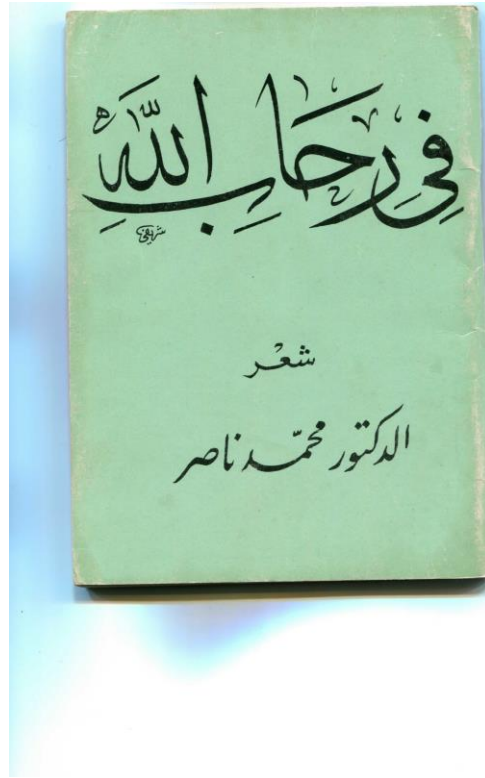 فِي رِحَابِ اللَّهِ
شريفي
شعْر
الدكتور محمّد ناصر